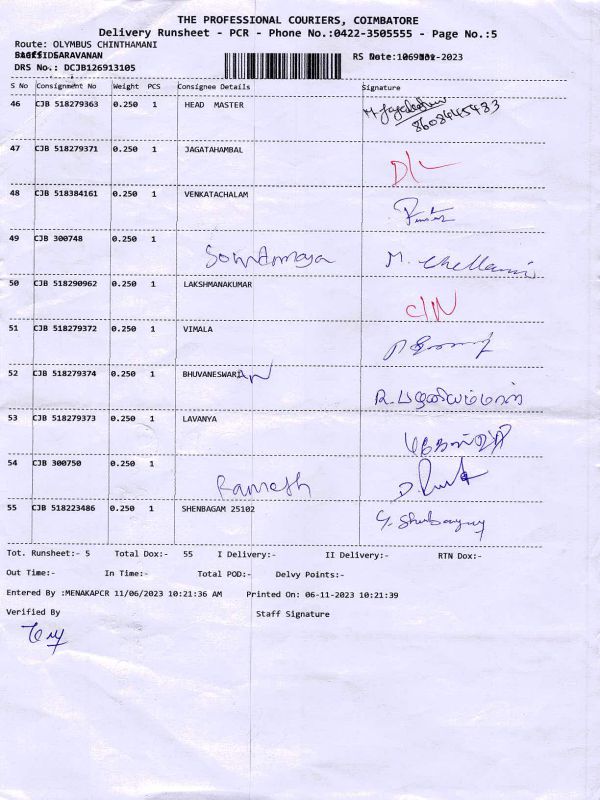 THE PROFESSIONAL COURIERS, COIMBATORE
Delivery Runsheet - PCR - Phone No.:0422-3505555 - Page No.:5
Route: OLYMBUS CHINTHAMANI
SARAVANAN RS Date: -2023
DRS No.: DCJB126913105
S No Consignment No Weight PCS Consignee Details Signature
46 CJB 518279363 0.250 1 HEAD MASTER
8608445483
47 CJB 518279371 0.250 1 JAGATAHAMBAL D/L
48 CJB 518384161 0.250 1 VENKATACHALAM
49 CJB 300748 0.250 1 M. Chellammal
50 CJB 518290962 0.250 1 LAKSHMANAKUMAR C/N
51 CJB 518279372 0.250 1 VIMALA
52 CJB 518279374 0.250 1 BHUVANESWARI R.
53 CJB 518279373 0.250 1 LAVANYA
54 CJB 300750 0.250 1 Ramesh
55 CJB 518223486 0.250 1 SHENBAGAM 25102
Tot. Runsheet:- 5 Total Dox:- 55 I Delivery:- II Delivery:- RTN Dox:-
Out Time:- In Time:- Total POD:- Delvy Points:-
Entered By :MENAKAPCR 11/06/2023 10:21:36 AM Printed On: 06-11-2023 10:21:39
Verified By Staff Signature